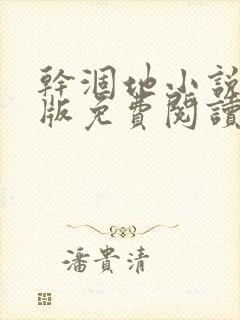 幹涸地小說
版免費閱讀
潘貴清